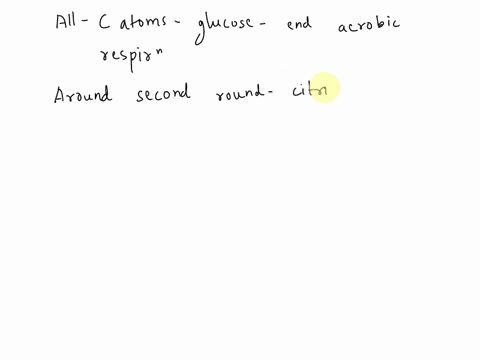 All - C atoms - glucose - end aerobic
respirⁿ
Around second round - citr